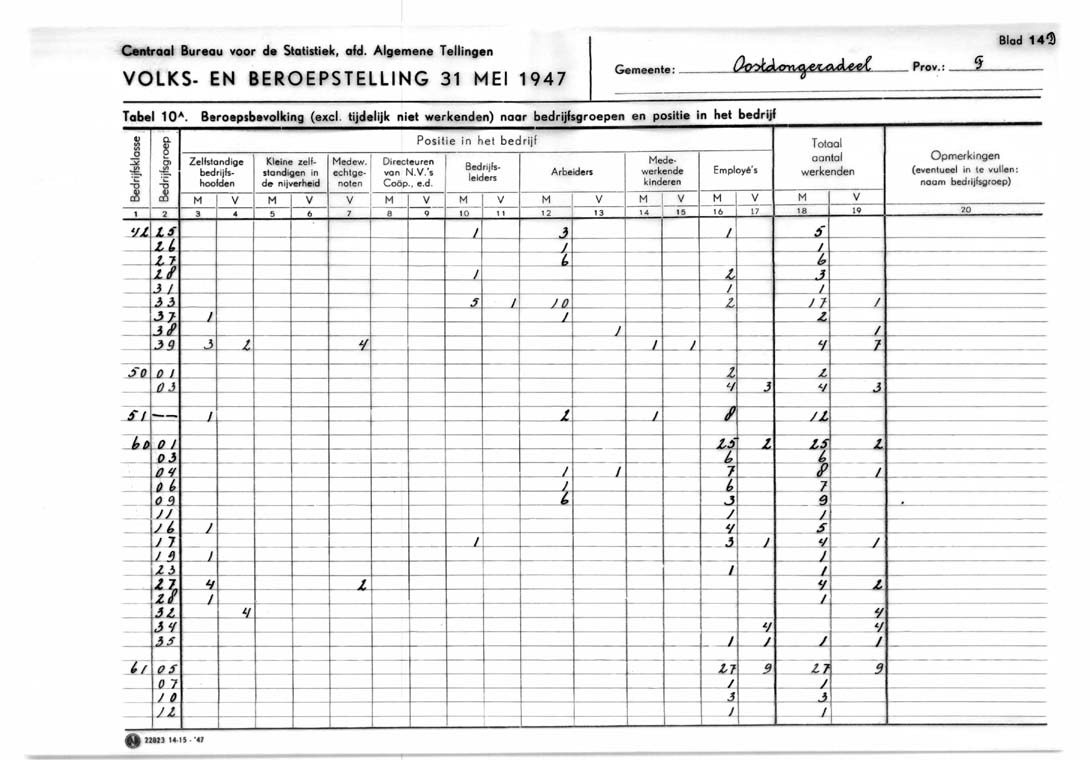 Blad 149
Centraal Bureau voor de Statistiek, afd. Algemene Tellingen
VOLKS- EN BEROEPSTELLING 31 MEI 1947
Gemeente: Oostdongeradeel Prov.: F
Tabel 10A. Beroepsbevolking (excl. tijdelijk niet werkenden) naar bedrijfsgroepen en positie in het bedrijf
Bedrijfsklasse Bedrijfsgroep Positie in het bedrijf Totaal aantal werkenden Opmerkingen (eventueel in te vullen: naam bedrijfsgroep)
Zelfstandige bedrijfs- hoofden Kleine zelf- standigen in de nijverheid Medew. echtge- noten Directeuren van N.V.'s Coöp., e.d. Bedrijfs- leiders Arbeiders Mede- werkende kinderen Employé's
M V M V V M V M V M V M V M V M V
1 2 3 4 5 6 7 8 9 10 11 12 13 14 15 16 17 18 19 20
42 25 1 3 1 5
26 1 1
27 6 6
28 1 2 3
31 1 1
33 5 1 10 2 17 1
37 1 1 2
38 1 1
39 3 2 4 1 1 4 7
50 01 2 2
03 4 3 4 3
51 -- 1 2 1 8 12
60 01 25 2 25 2
03 6 6
04 1 1 7 8 1
06 1 6 7
09 6 3 9
11 1 1
16 1 4 5
17 1 3 1 4 1
19 1 1
23 1 1
27 4 2 4 2
28 1 1
32 4 4
34 4 4
35 1 1 1 1
61 05 27 9 27 9
07 1 1
10 3 3
12 1 1
22823 14-15 - '47